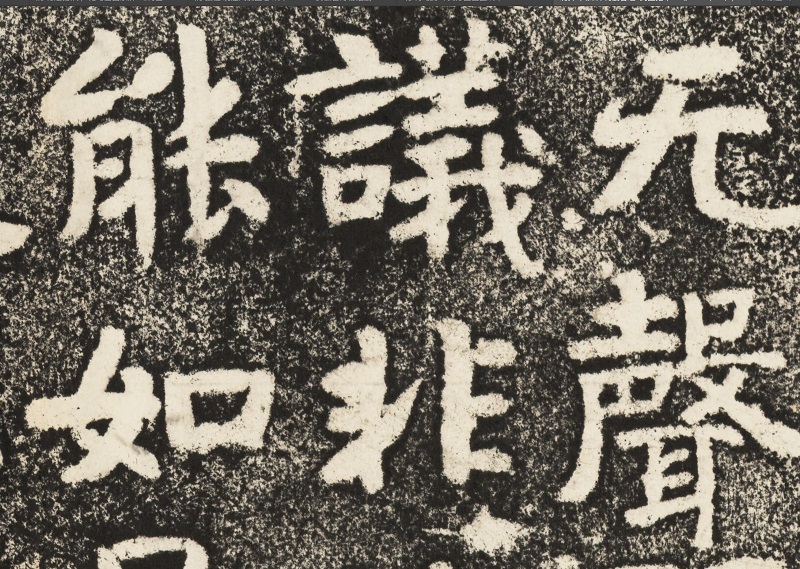 元聲
議非
能如